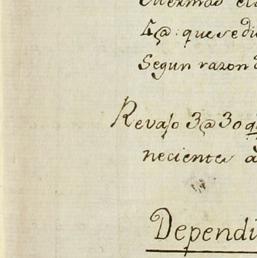 4@: que se di
Segun razon d
Revajo 3@30
neciente a
Dependi